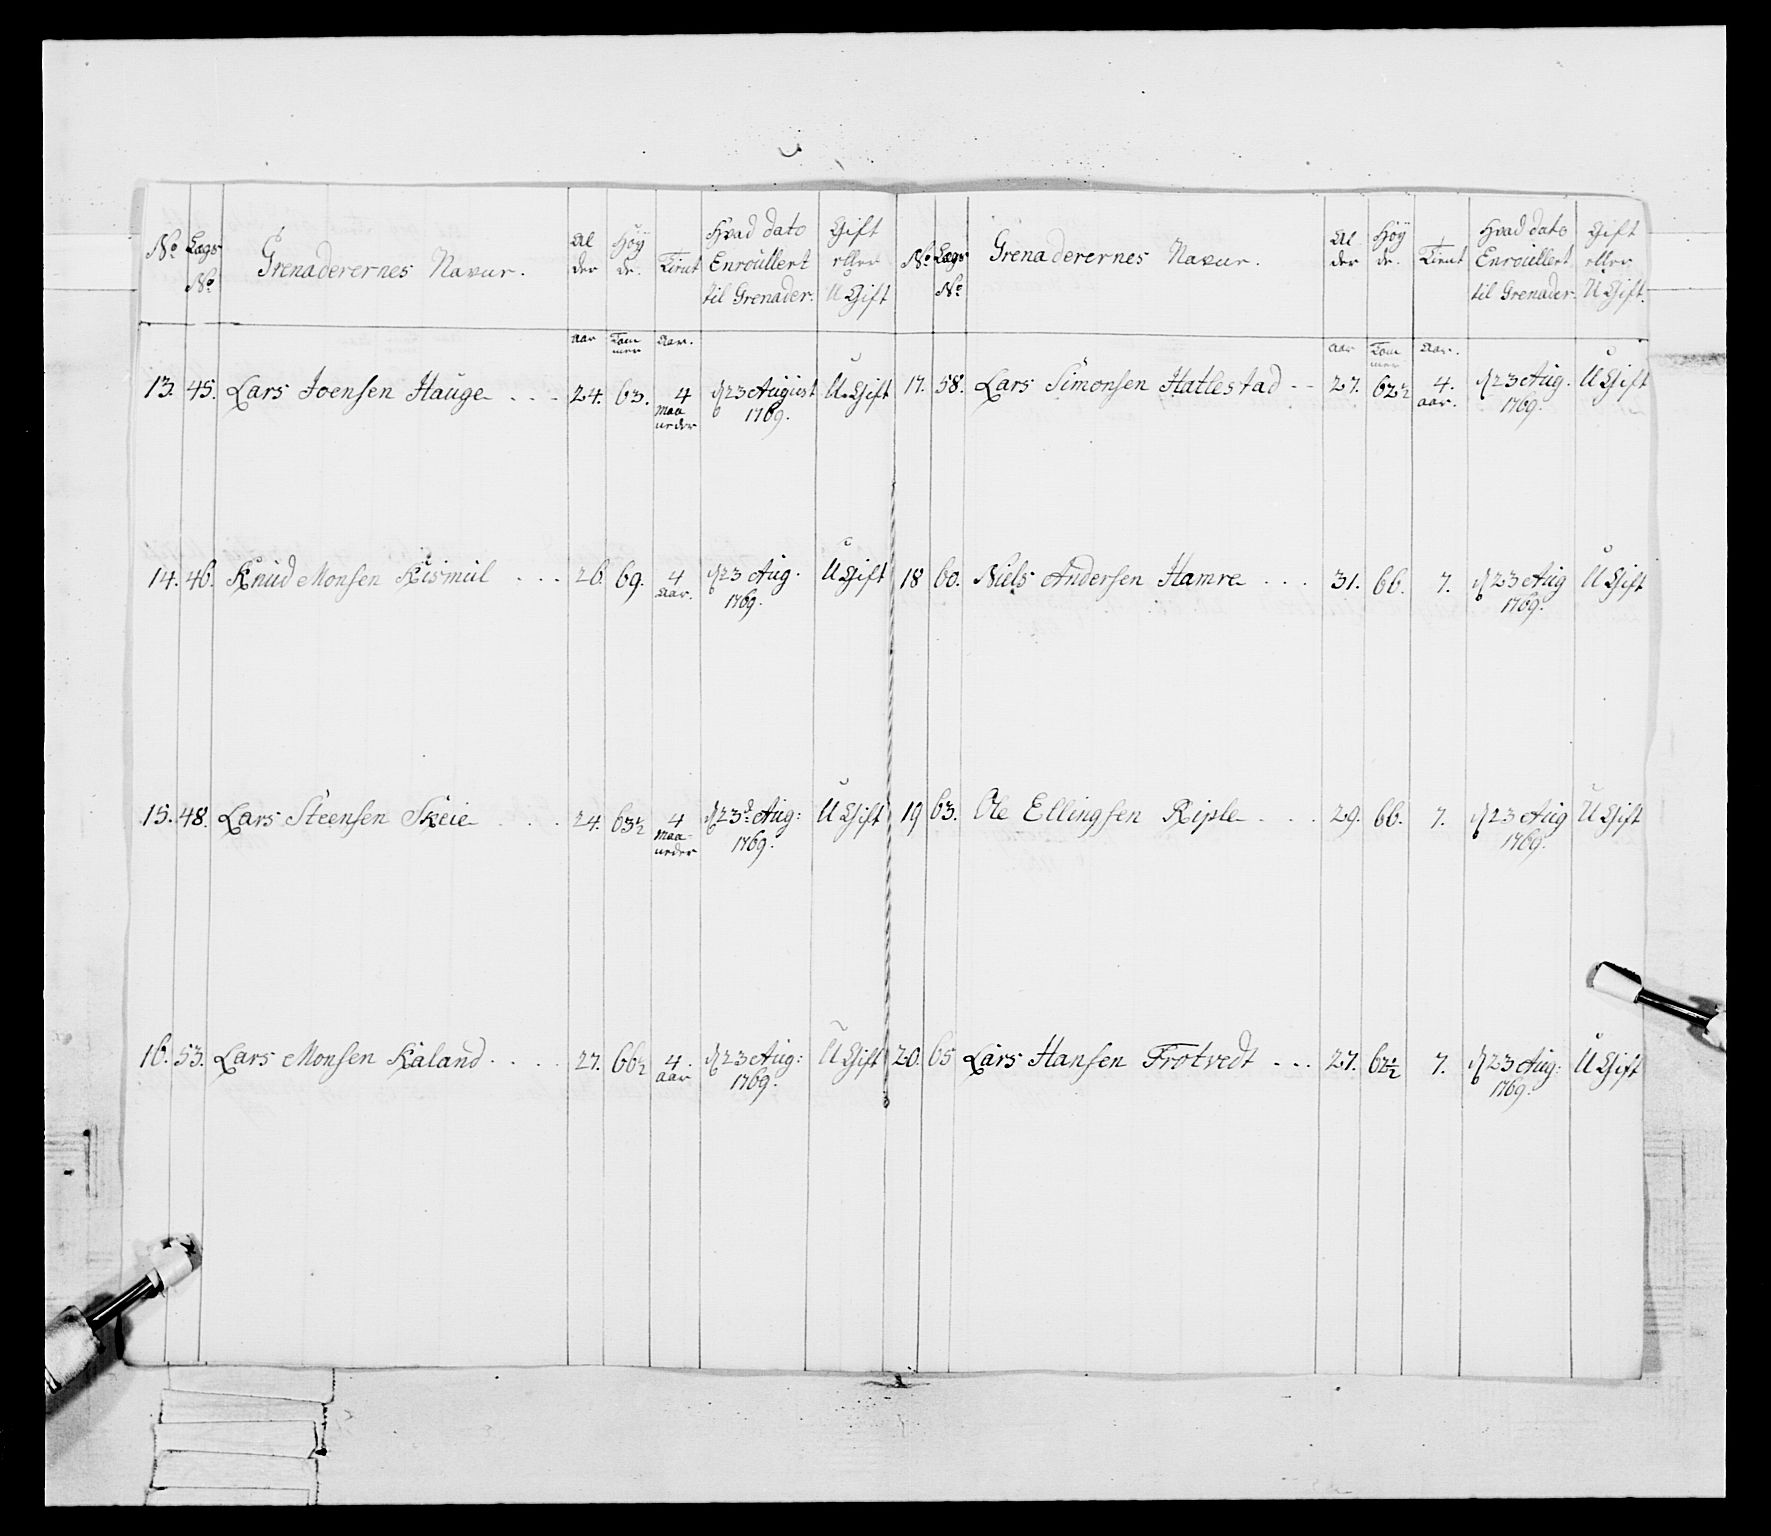 No Lægs No Grenaderernes Navne. Al der Høy de. Tient Hvad dato Enroullert til Grenader. Gift eller U Gift
aar Tom mer Aar.
13. 45. Lars Joensen Hauge 24. 63. 4 Maa neder d 23 August 1769. U Gift
14. 46. Knud Monsen Kismul 26 69. 4 Aar. d 23 Aug. 1769. U Gift
15. 48. Lars Steensen Skeie 24. 63½ 4 Maa neder d 23d Aug: 1769. U Gift
16. 53. Lars Monsen Kaland 27. 66½ 4. aar d 23 Aug: 1769. U Gift
No Lægs No Grenaderernes Navne. Al der Høy de. Tient Hvad dato Enroullert til Grenader. Gift eller U Gift.
aar Tom mer Aar.
17. 58. Lars Simonsen Hatlestad 27. 62½ 4. aar. d 23 Aug. 1769. U Gift
18 60. Niels Andersen Hamre 31. 66. 7. d 23 Aug 1769. U Gift
19 63. Ole Ellingsen Riple 29. 66. 7. d 23 Aug 1769. U Gift
20. 65 Lars Hansen Frotvedt 27. 62½ 7. d 23 Aug: 1769. U Gift